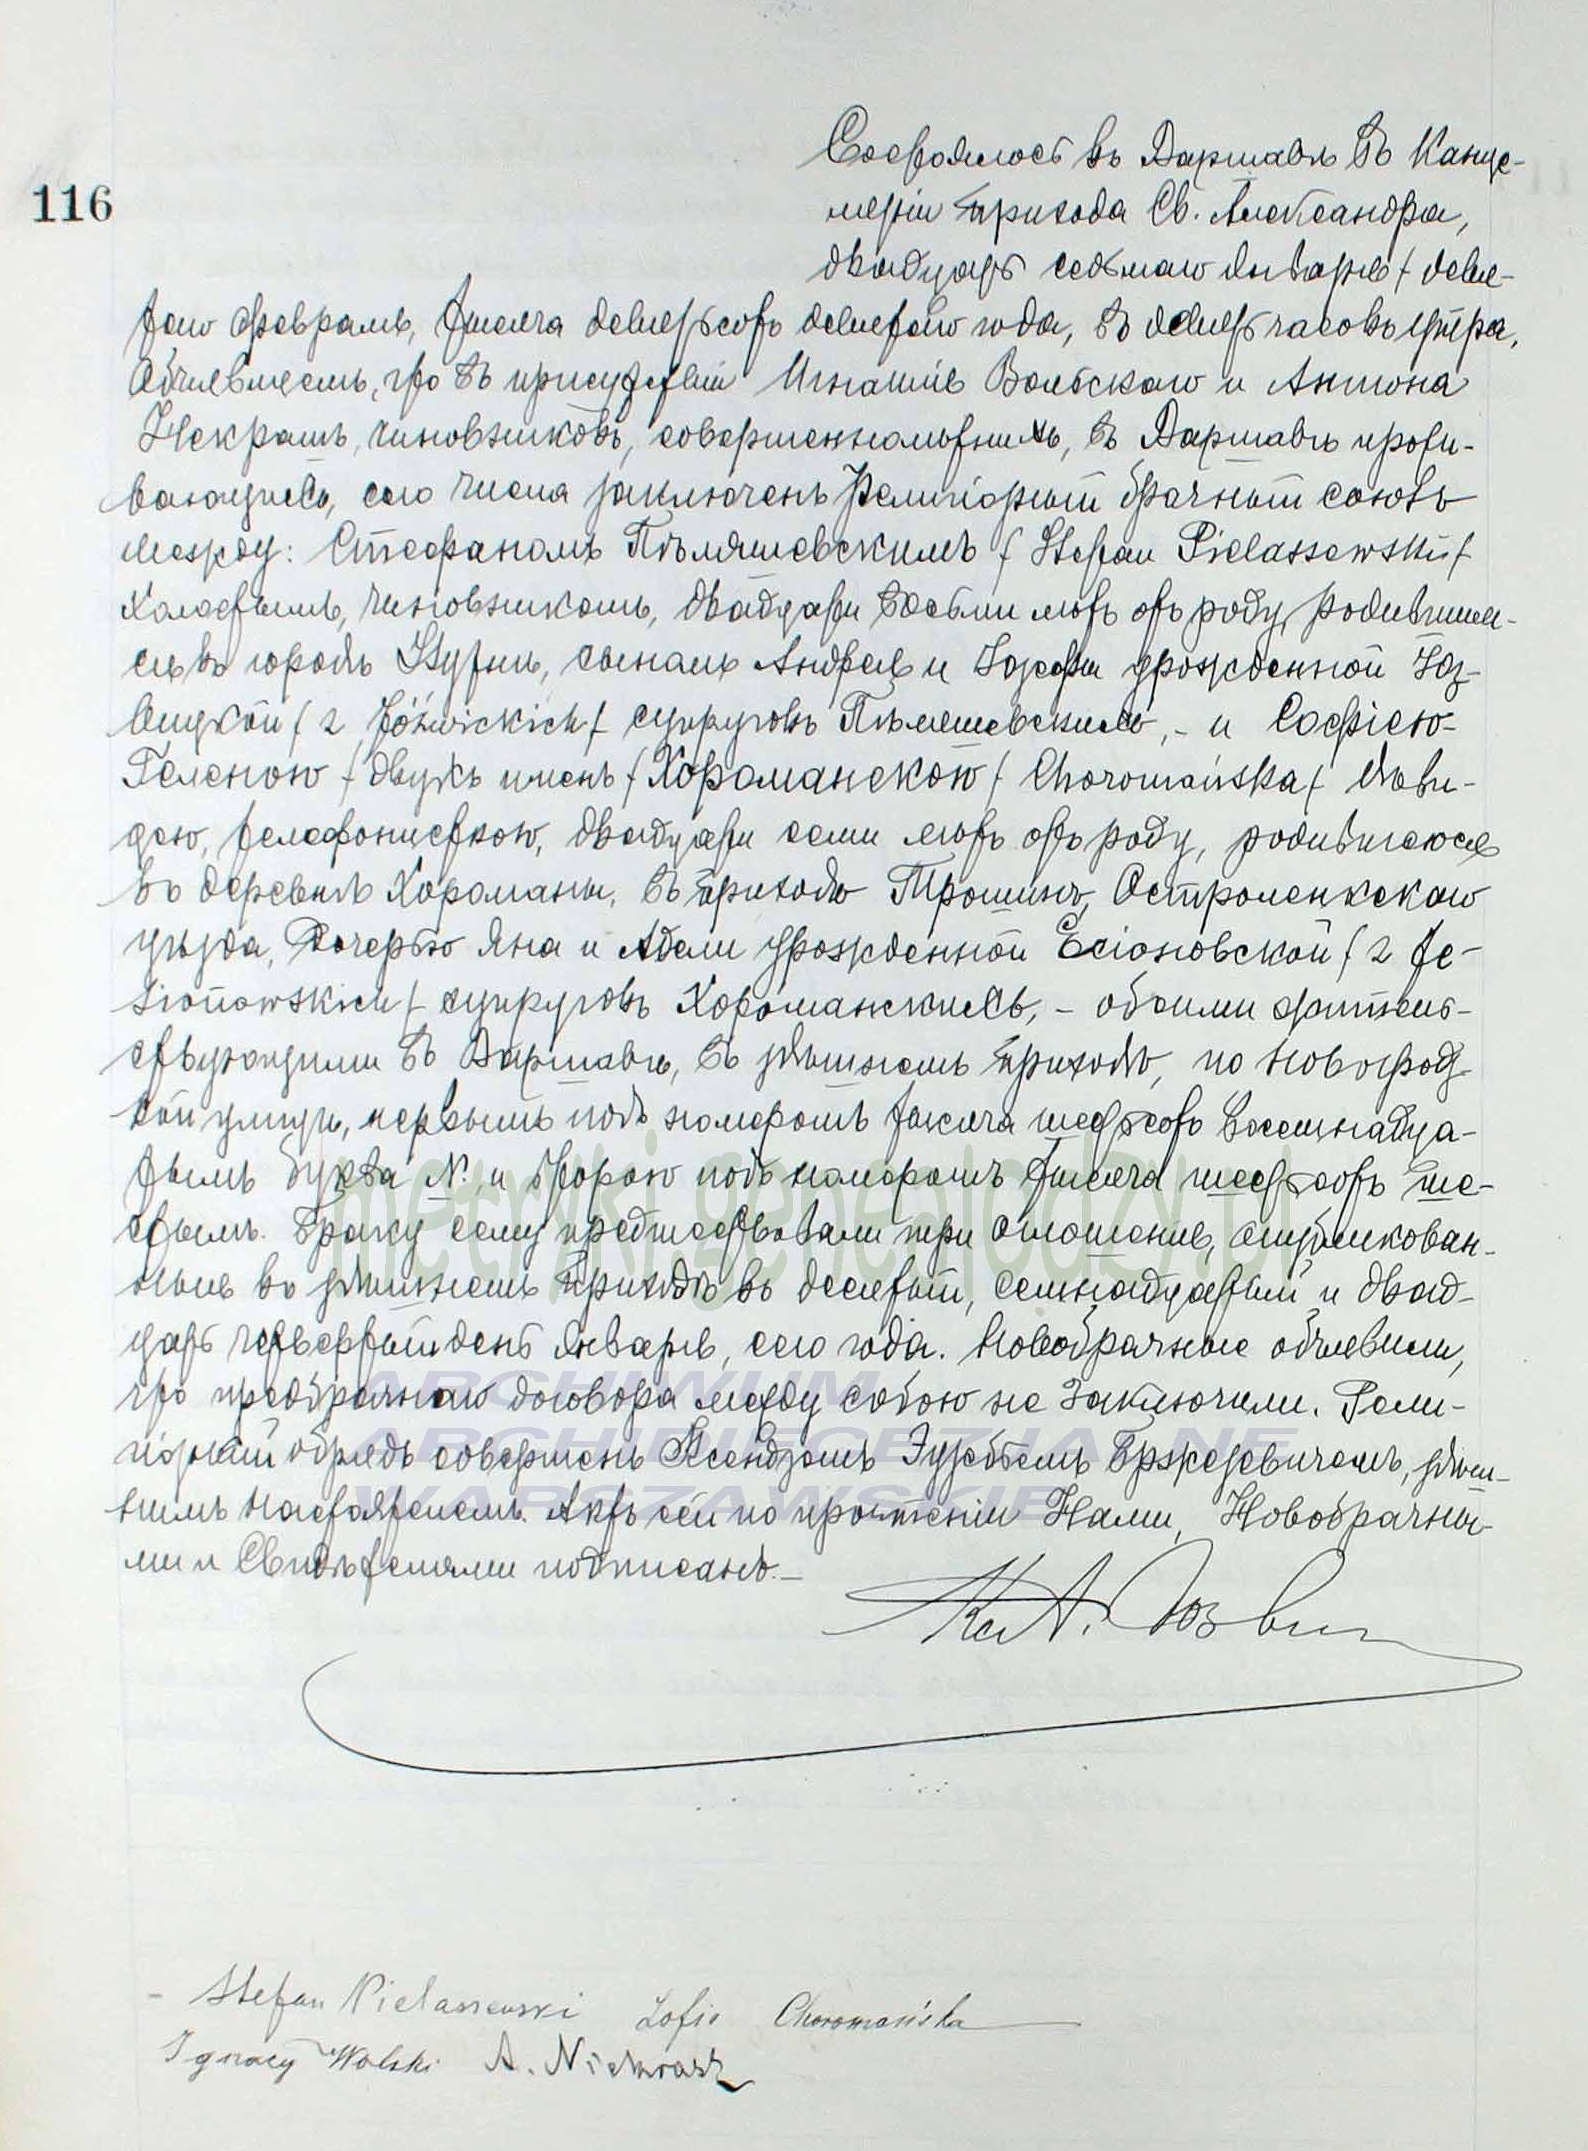 116
Состоялось въ Варшавѣ въ Канце-
ляріи прихода Св. Александра,
двадцать седьмаго Января / девя-
таго Февраля, тысяча девятьсотъ девятаго года, въ девять часовъ утра.
Объявляемъ, что въ присутствіи Игнатія Вольскаго и Антона
Некрашъ, чиновниковъ, совершеннолѣтнихъ, въ Варшавѣ прожи-
вающихъ, сего числа заключенъ Религіозный брачный союзъ
между: Стефаномъ Пѣляшевскимъ / Stefan Pielaszewski /
Холостымъ, чиновникомъ, двадцати восьми лѣтъ отъ роду, родившим-
ся въ городѣ сыномъ Андрея и Іозефы урожденной Юз-
вицкой / z Jóźwickich / супруговъ Пѣляшевскихъ, - и Софіею-
Геленою / двухъ именъ / Хороманскою / Choromańska / дѣви-
цею, телефонисткою, двадцати семи лѣтъ отъ роду, родившеюся
въ деревнѣ Хороманы, въ приходѣ Трошинъ, Остроленкскаго
уѣзда, Дочерью Яна и Адели урожденной Есіоновской / z Je-
sionowskich / супруговъ Хороманскихъ, - обоими жительс-
твующими въ Варшавѣ, въ здѣшнемъ приходѣ, по Новогрод-
ской улицѣ, первымъ подъ номеромъ тысяча шестьсотъ восемнадца-
тымъ буква N. и второю подъ номеромъ тысяча шестьсотъ ше-
стымъ. Браку сему предшествовали три оглашенія, опубликован-
ныя въ здѣшнемъ приходѣ въ десятый, семнадцатый и двад-
цать четвертый день Января, сего года. Новобрачные объявили,
что предбрачнаго договора между собою не заключили. Рели-
гіозный обрядъ совершенъ Ксендзомъ Эузебіемъ Бржезевичемъ, здѣш-
нимъ Настоятелемъ. Актъ сей по прочтеніи Нами, Новобрачны-
ми и Свидѣтелями подписанъ. —
Кс А.
- Stefan Pielaszewski Zofia Choromańska
Ignacy Wolski A. Niekrasz
metryki.genealodzy.pl
ARCHIWUM
ARCHIDIECEZJALNE
WARSZAWSKIE